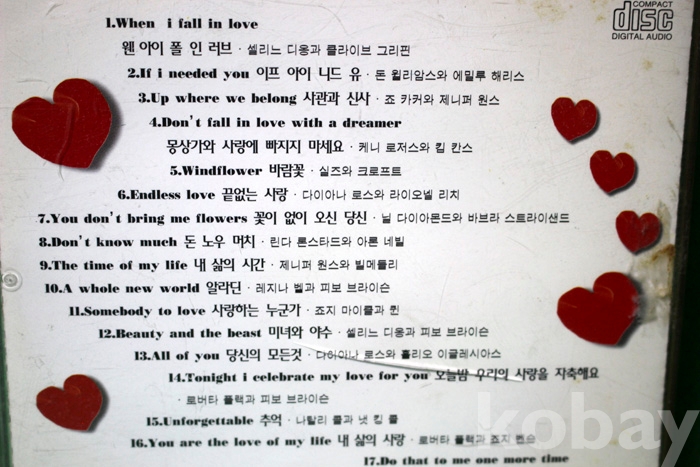 COMPACT
disc
DIGITAL AUDIO
1.When i fall in love
웬 아이 폴 인 러브 · 셀리느 디옹과 클라이브 그리핀
2.If i needed you 이프 아이 니드 유 · 돈 윌리암스와 에밀루 해리스
3.Up where we belong 사관과 신사 · 죠 카커와 제니퍼 원스
4.Don't fall in love with a dreamer
몽상가와 사랑에 빠지지 마세요 · 케니 로저스와 킴 칸스
5.Windflower 바람꽃 · 실즈와 크로프트
6.Endless love 끝없는 사랑 · 다이아나 로스와 라이오넬 리치
7.You don't bring me flowers 꽃이 없이 오신 당신 · 닐 다이아몬드와 바브라 스트라이샌드
8.Don't know much 돈 노우 머치 · 린다 론스타드와 아론 네빌
9.The time of my life 내 삶의 시간 · 제니퍼 원스와 빌메들리
10.A whole new world 알라딘 · 레지나 벨과 피보 브라이슨
11.Somebody to love 사랑하는 누군가 · 죠지 마이클과 퀸
12.Beauty and the beast 미녀와 야수 · 셀리느 디옹과 피보 브라이슨
13.All of you 당신의 모든것 · 다이아나 로스와 훌리오 이글레시아스
14.Tonight i celebrate my love for you 오늘밤 우리의 사랑을 자축해요
· 로버타 플랙과 피보 브라이슨
15.Unforgettable 추억 · 나탈리 콜과 냇 킹 콜
16.You are the love of my life 내 삶의 사랑 · 로버타 플랙과 죠지 벤슨
17.Do that to me one more time
kobay